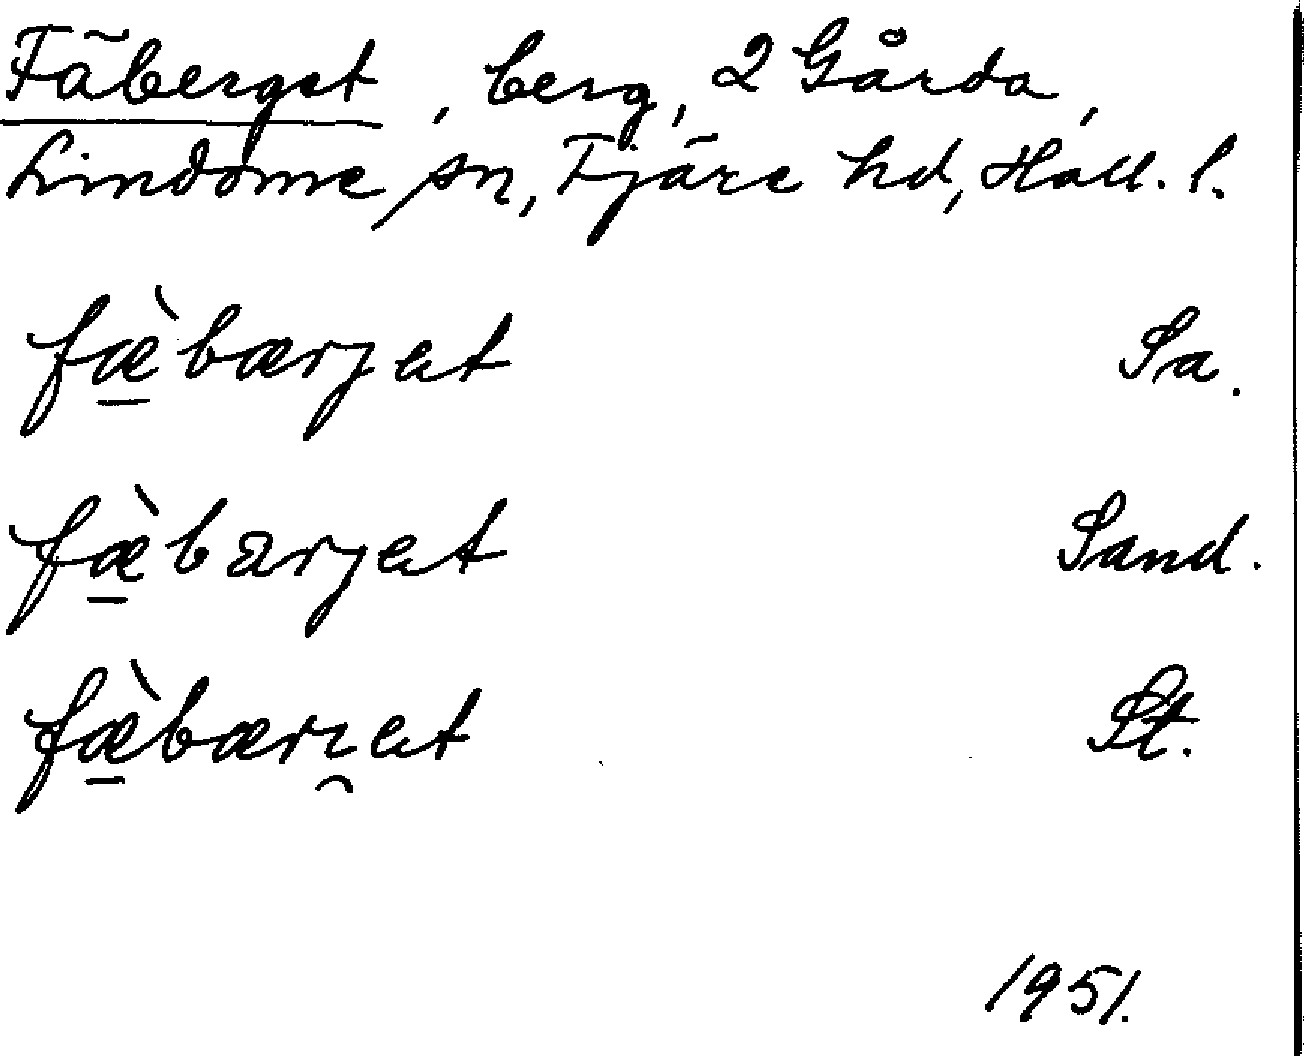 Fäberget, berg, 2 Gårda,
Lindome sn, Fjäre hd, Hall. l.
fæ̠̀bærjat Sa.
fæ̠̀barjat Sand.
fæ̠̀bæri̯at St.
1951.